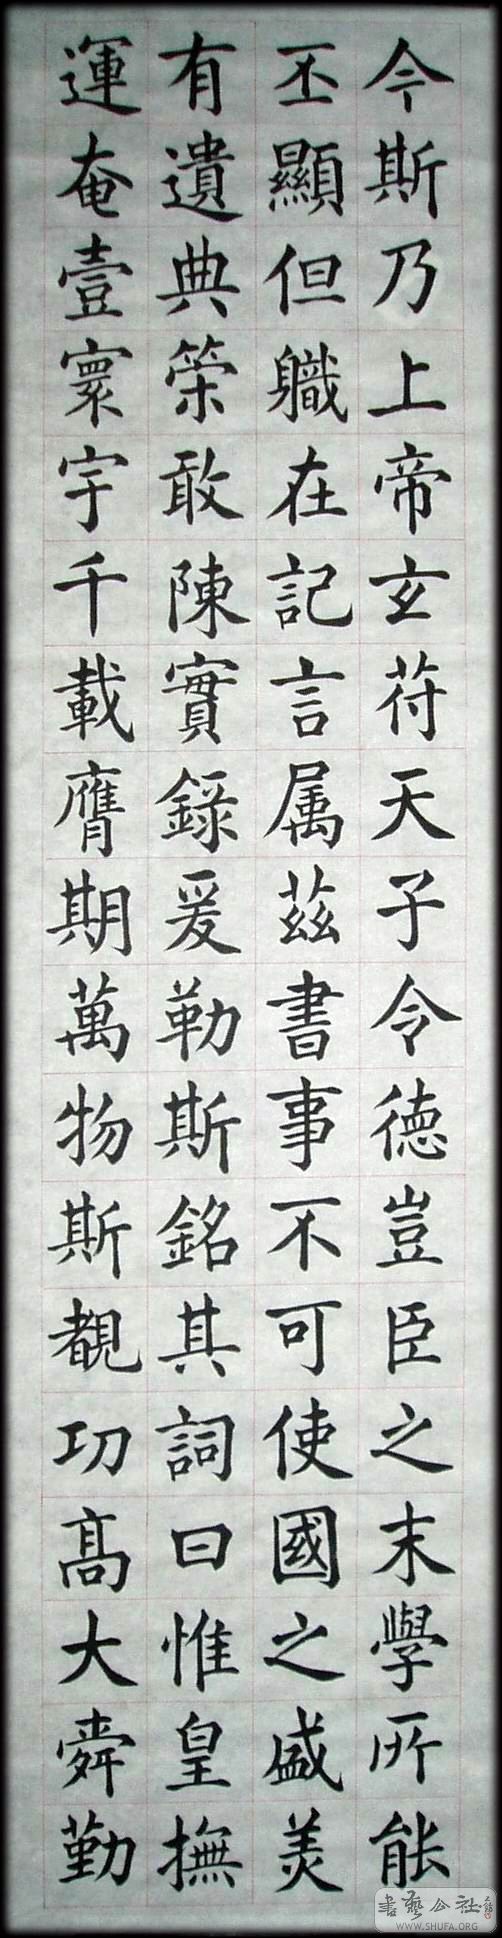 今斯乃上帝玄苻天子令德豈臣之末學所能
丕顯但軄在記言属茲書事不可使國之盛美
有遺典策敢陳實錄爰勒斯銘其詞曰惟皇撫
運奄壹寰宇千載膺期萬物斯覩功髙大舜勤
書藝公社
WWW.SHUFA.ORG